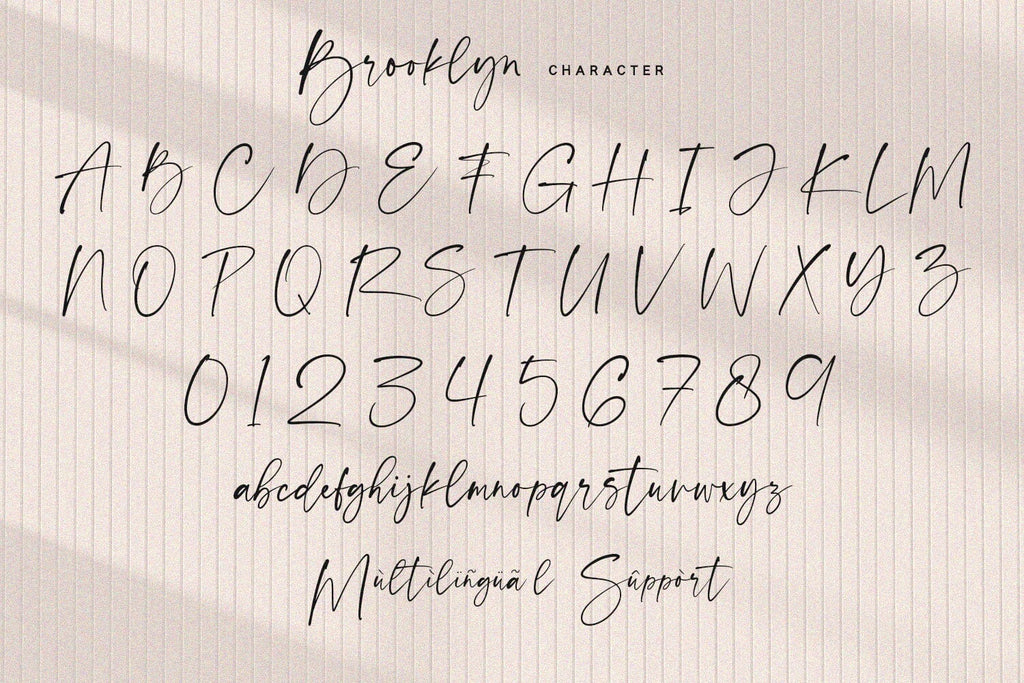 Brooklyn CHARACTER
A B C D E F G H I J K L M
N O P Q R S T U V W X Y Z
0 1 2 3 4 5 6 7 8 9
abcdefghijklmnopqrsturwxyz
Mùltìlïñgüãl Sûppòrt